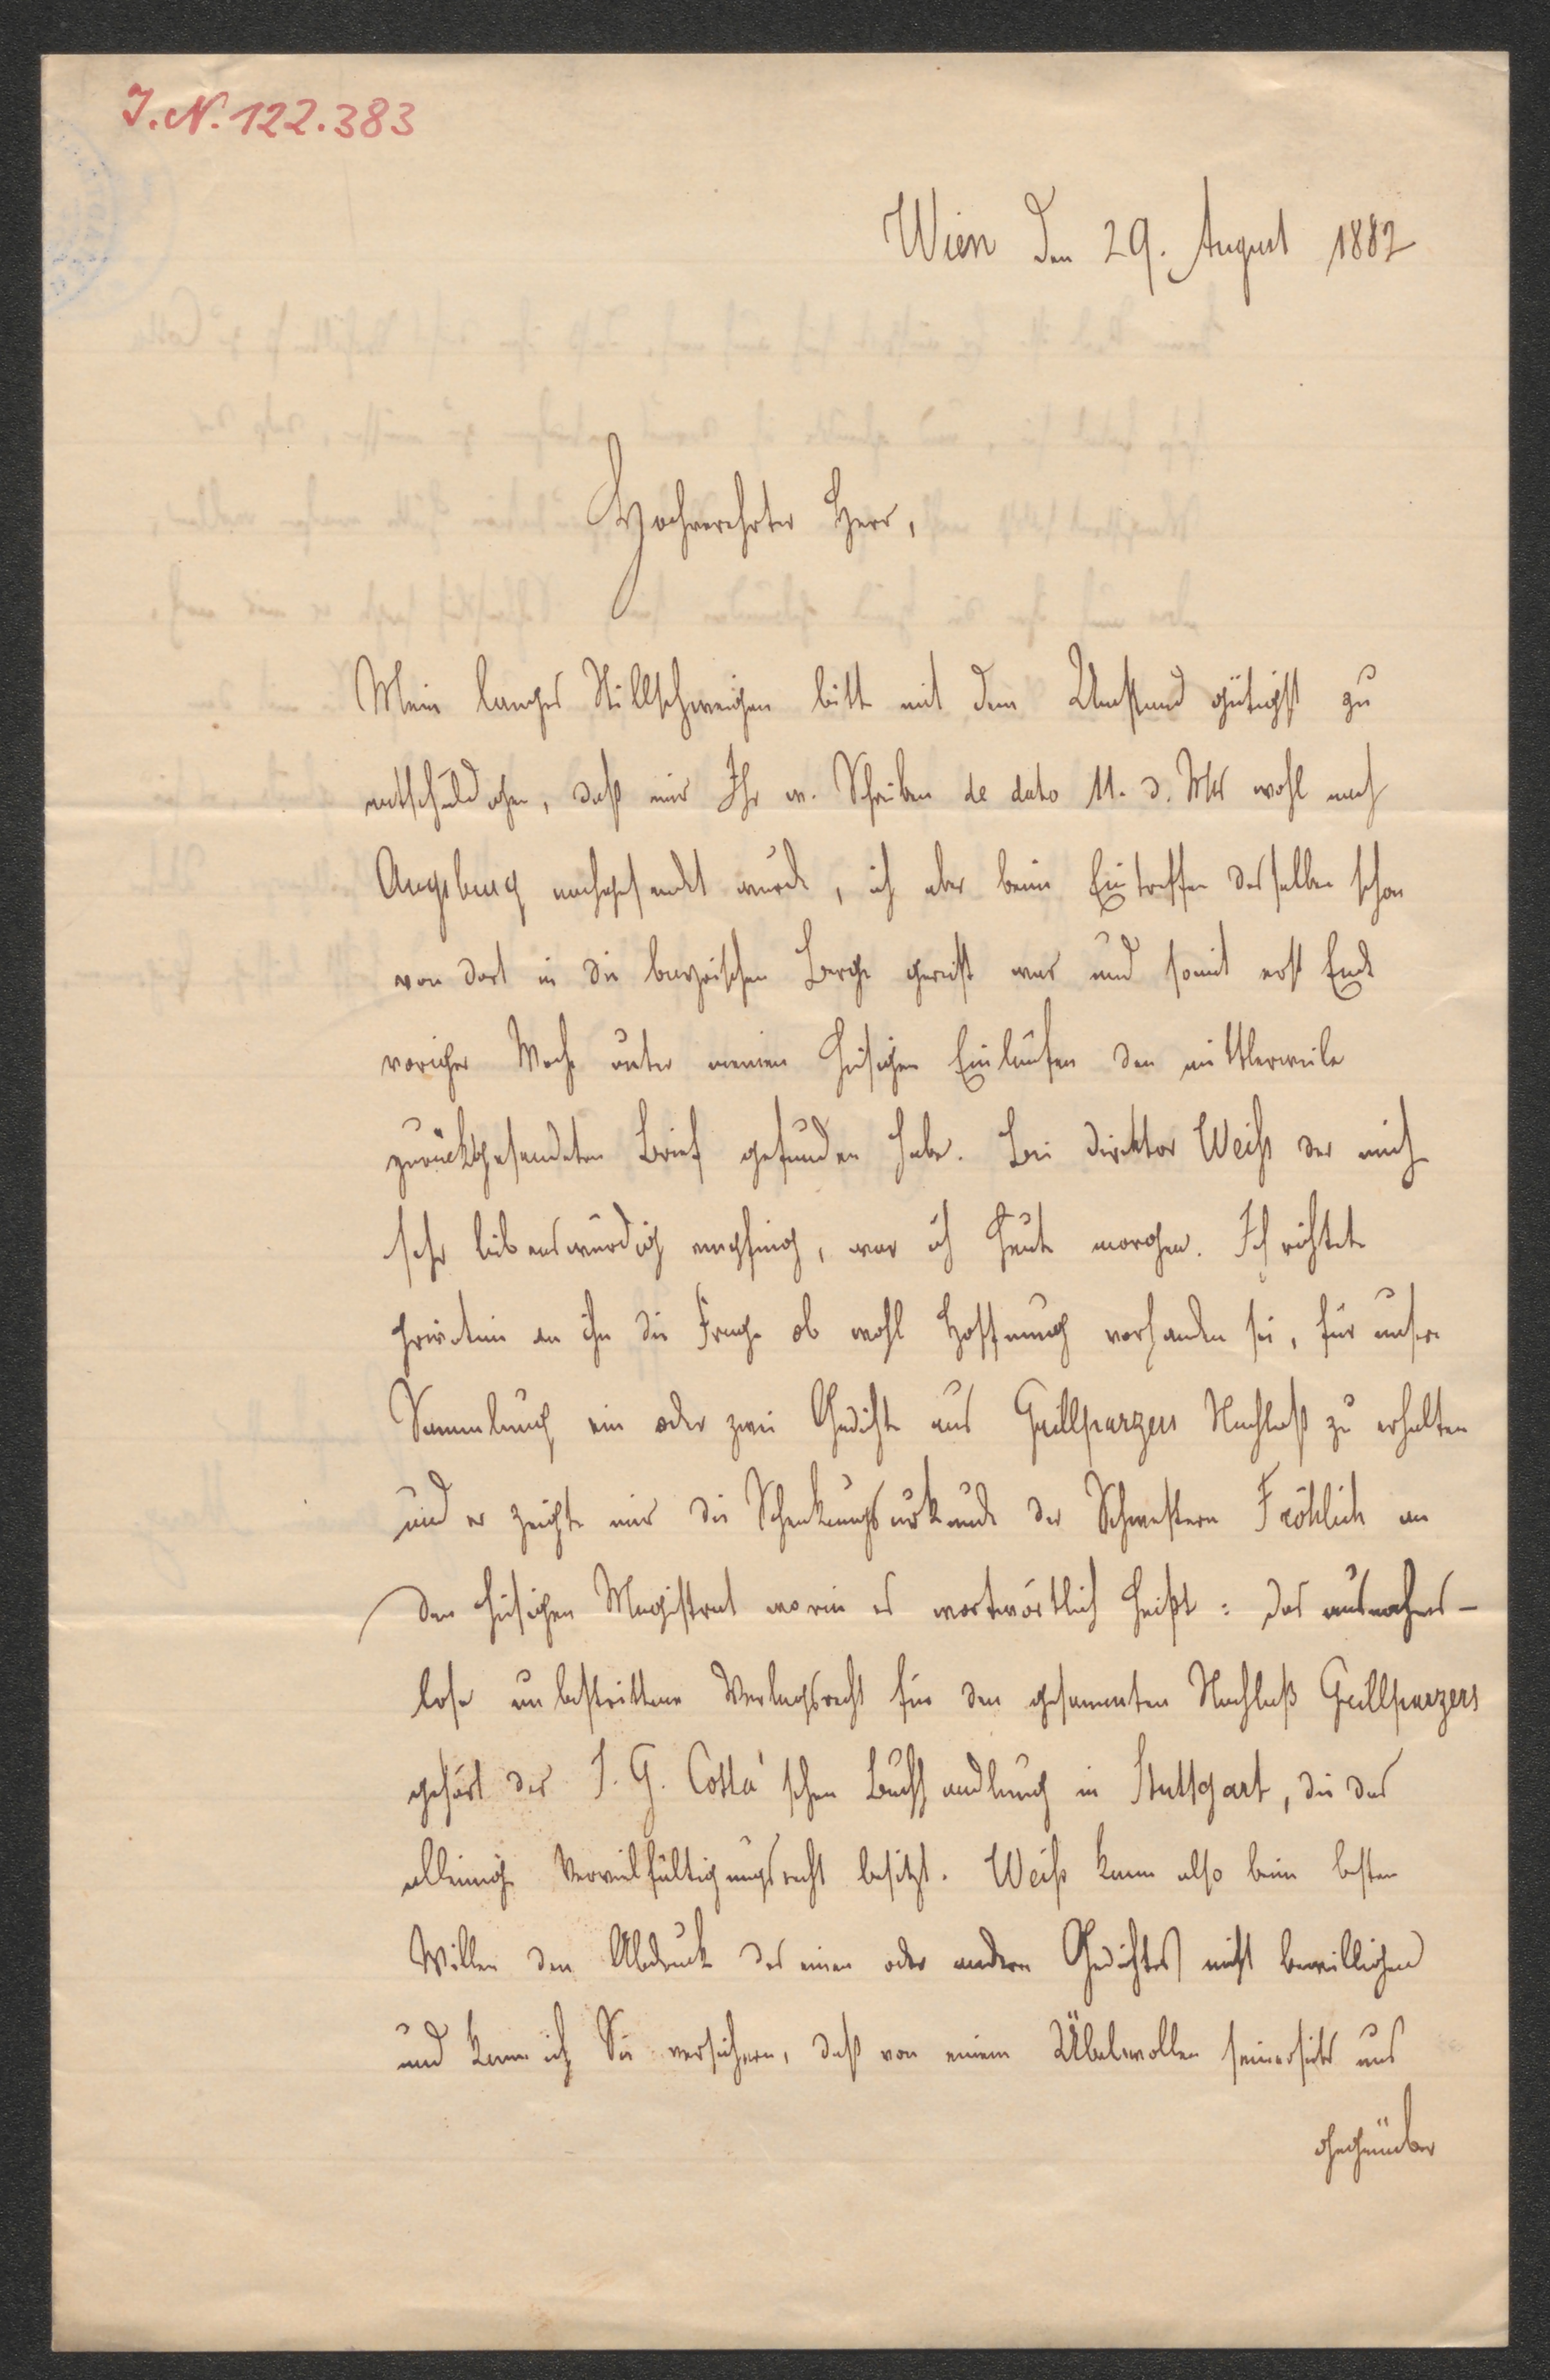 I.N. 122.383
Wien den 29. August 1882
Hochverehrter Herr,
Mein langes Stillschweigen bitte mit dem Umstand gütigst zu
entschuldigen, daß mir Ihr w. Schreiben de dato 11. d. Mts wohl nach
Augsburg nachgesendet wurde, ich aber beim Eintreffen desselben schon
von dort in die bayrischen Berge gereist war und somit erst Ende
voriger Woche unter meinen hiesigen Einläufen den mittlerweile
zurückgesendeten Brief gefunden habe. Bei Direktor Weiß der mich
sehr liebenswürdig empfing, war ich heute morgen. Ich richtete
hierin an ihn die Frage ob wohl Hoffnung vorhanden sei, für unsere
Sammlung ein oder zwei Gedichte aus Grillparzers Nachlaß zu erhalten
und er zeigte mir die Schenkungsurkunde der Schwestern Fröhlich an
den hiesigen Magistrat worin es wortwörtlich heißt: Das ausnahms-
lose unbestrittene Verlagsrecht für den gesammten Nachlaß Grillparzers
gehört der J. G. Cotta'schen Buchhandlung in Stuttgart, die das
alleinige Vervielfältigungsrecht besitzt. Weiß kann also beim besten
Willen den Abdruck des einen oder andern Gedichtes nicht bewilligen
und kann ich Sie versichern, daß von einem Übelwollen seinerseits uns
gegenüber